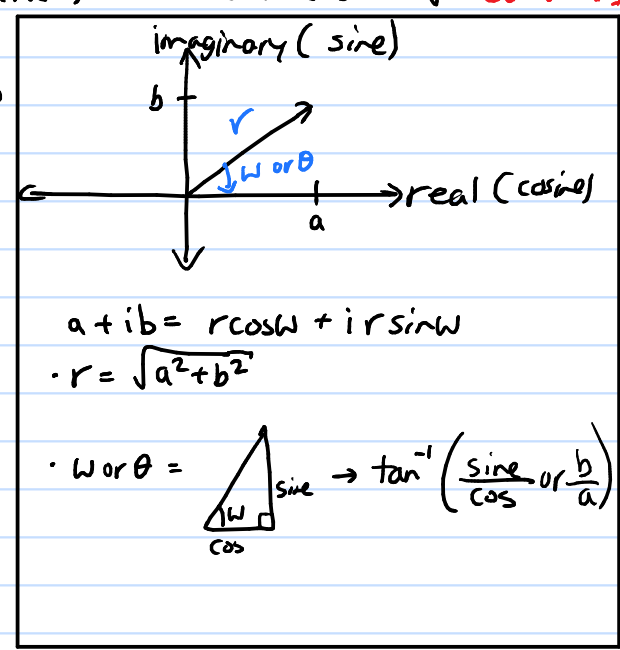 imaginary ( sine)
b
r
w or θ
real (cosine)
a
a + ib = rcosw + i r sinw
· r = √a²+b²
· w or θ =
sine → tan⁻¹ (sine/cos or b/a)
w
cos